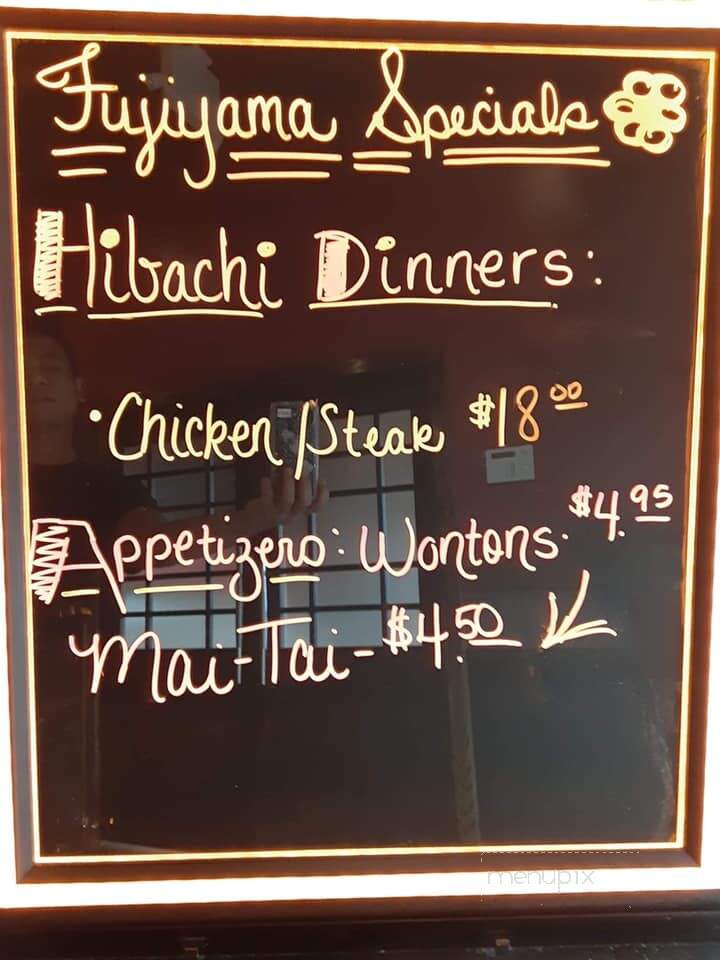 Fujiyama Specials
Hibachi Dinners:
• Chicken/Steak $18.00
Appetizers: Wontons. $4.95
Mai-Tai-$4.50
menupix